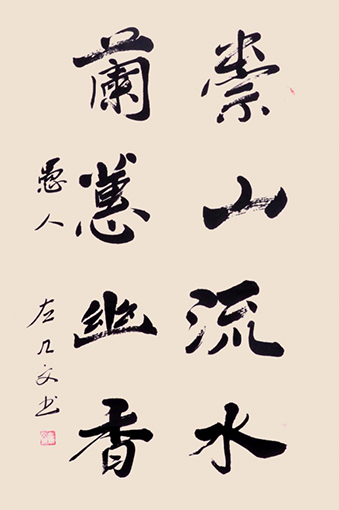 崇山流水
蘭蕙幽香
愚人
左几文书